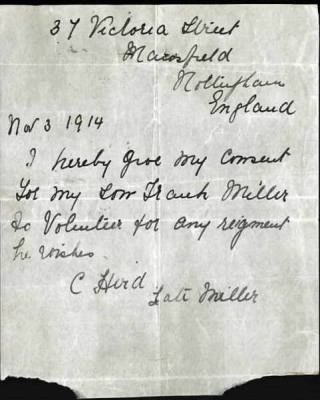 37 Victoria Street
Mansfield
Nottingham
England
Nov 3 1914
I hereby give my consent
for my son Frank Miller
to Volunteer for any regiment
he wishes.
C Hird
late Miller